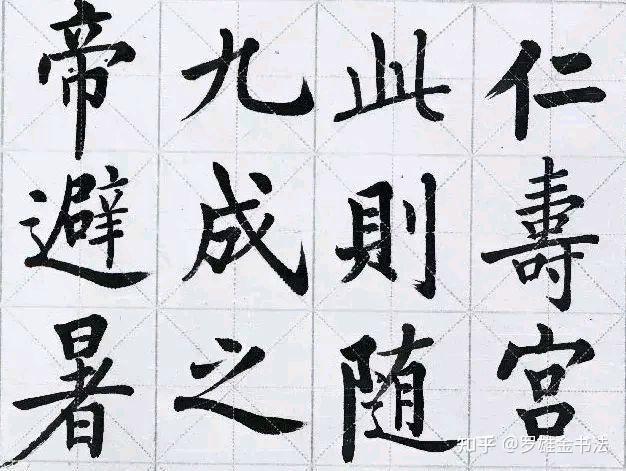 帝避暑
九成之
此則随
仁壽宮
知乎 @罗雄金书法